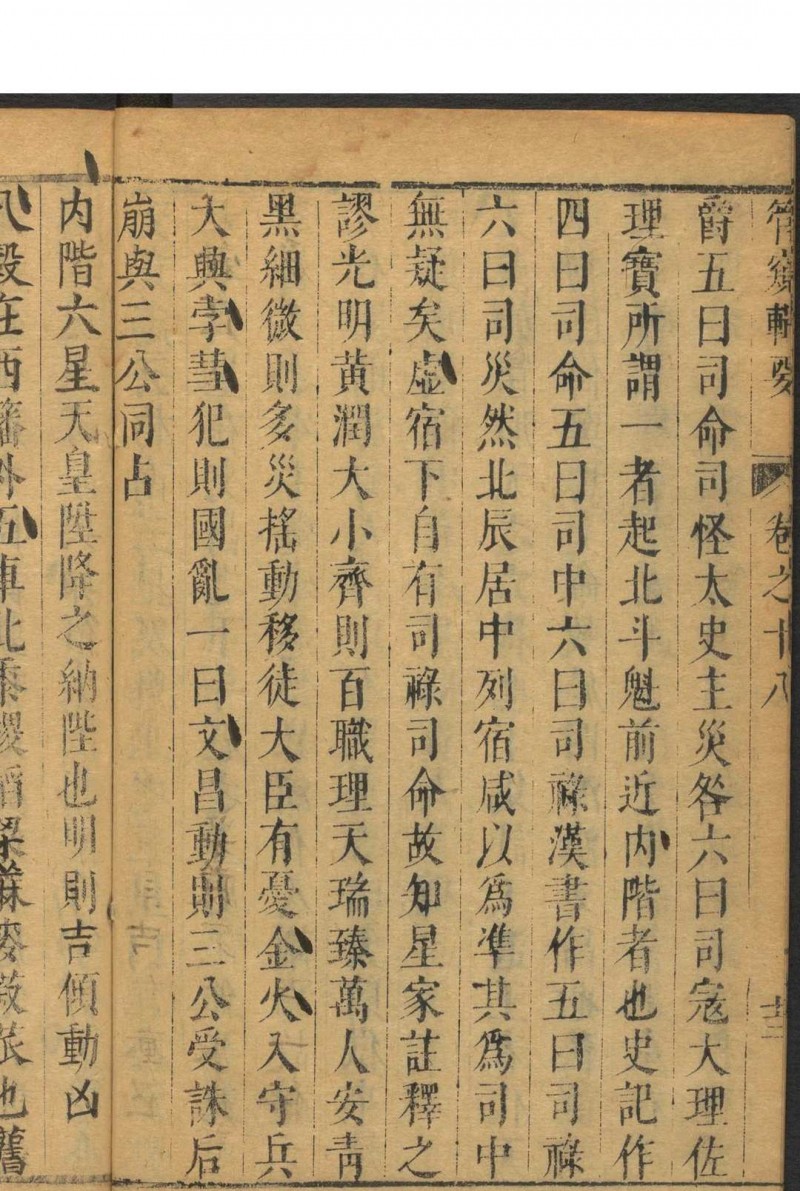 管窺輯要 卷之十八 十三
爵五曰司命司怪太史主災咎六曰司寇大理佐
理寶所謂一者起北斗魁前近內階者也史記作
四曰司命五曰司中六曰司祿漢書作五曰司祿
六曰司災然北辰居中列宿咸以爲準其爲司中
無疑矣虛宿下自有司祿司命故知星家註釋之
謬光明黃潤大小齊則百職理天瑞臻萬人安靑
黑細微則多災搖動移徒大臣有憂金火入守兵
大興孛彗犯則國亂一曰文昌動則三公受誅后
崩與三公同占
內階六星天皇陞降之納陛也明則吉傾動凶
八穀在西藩外五車北黍稷稻粱麻麥菽也舊